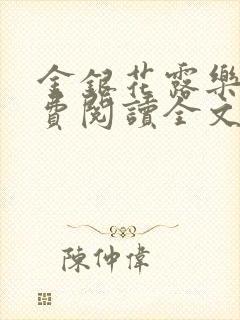 金銀花露樂
費閱讀全文
陳仲偉